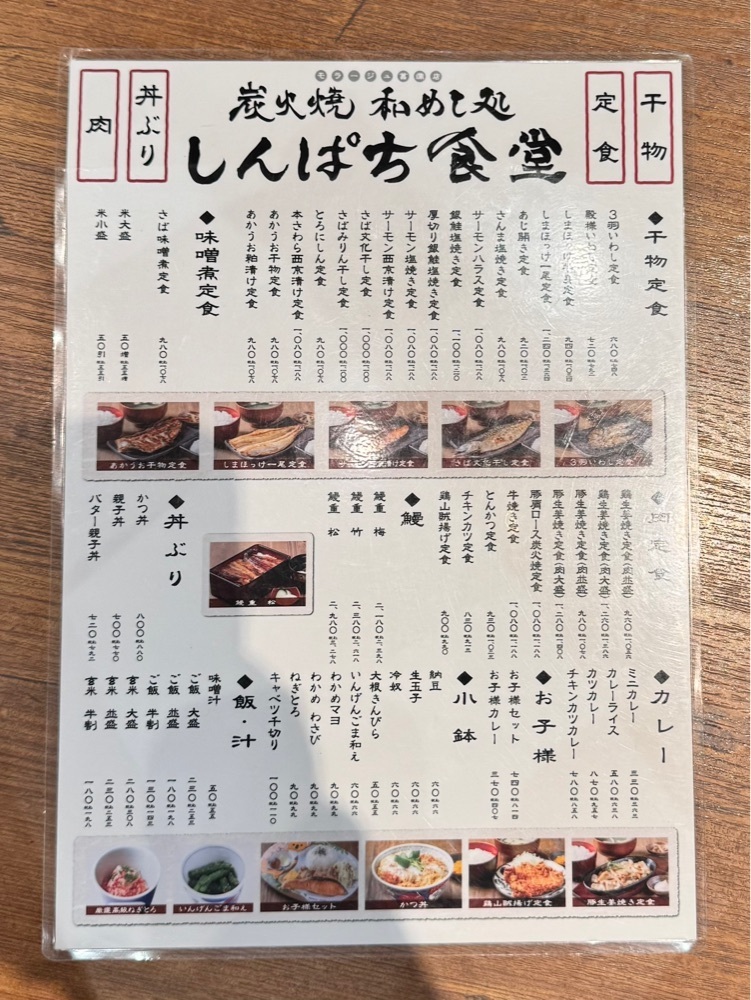 干物
定食
丼ぶり
肉
炭火焼 和めし処
しんぱち食堂
◆干物定食
3羽いわし定食 六八〇
しまほっけ一尾定食 一、二四〇
あじ開き定食 九二〇
さんま塩焼き定食 九八〇
サーモンハラス定食 一、〇八〇
銀鮭塩焼き定食 一、一〇〇
厚切り銀鮭塩焼き定食 一、〇八〇
サーモン塩焼き定食 一、〇八〇
サーモン西京漬け定食 一、〇八〇
さば文化干し定食 一、〇〇〇
さばみりん干し定食 一、〇〇〇
とろにしん定食 九八〇
本さわら西京漬け定食 一、〇八〇
あかうお干物定食 九八〇
あかうお粕漬け定食 九八〇
◆味噌煮定食
さば味噌煮定食 九八〇
米大盛 五〇増
米小盛 五〇引
あかうお干物定食
しまほっけ一尾定食
さば文化干し定食
3羽いわし定食
肉定食
鶏生姜焼き定食(肉並盛) 九六〇
鶏生姜焼き定食(肉大盛) 一、二六〇
豚生姜焼き定食(肉並盛) 九八〇
豚生姜焼き定食(肉大盛) 一、二八〇
豚肩ロース炭火焼定食 一、〇八〇
牛焼き定食 一、〇八〇
とんかつ定食 九三〇
チキンカツ定食 八三〇
鶏山賊揚げ定食 九〇〇
◆鰻
鰻重 梅 二、一八〇
鰻重 竹 二、三八〇
鰻重 松 二、九八〇
鰻重 松
◆丼ぶり
かつ丼 八〇〇 八八〇
親子丼 七〇〇 七七〇
バター親子丼 七二〇 七九二
◆カレー
ミニカレー 三三〇
カレーライス 五八〇
カツカレー 八七〇
チキンカツカレー 七八〇
◆お子様
お子様セット 七四〇
お子様カレー 三七〇
◆小鉢
納豆 六〇
生玉子 六〇
冷奴 六〇
大根きんぴら 五〇
いんげんごま和え 六〇
わかめマヨ 九〇
わかめ わさび 九〇
ねぎとろ 九〇
キャベツ千切り 一〇〇
◆飯・汁
味噌汁 五〇
ご飯 大盛 二三〇
ご飯 並盛 一八〇
ご飯 半割 一三〇
玄米 大盛 二八〇
玄米 並盛 二三〇
玄米 半割 一八〇
いんげんごま和え
お子様セット
かつ丼
鶏山賊揚げ定食
豚生姜焼き定食